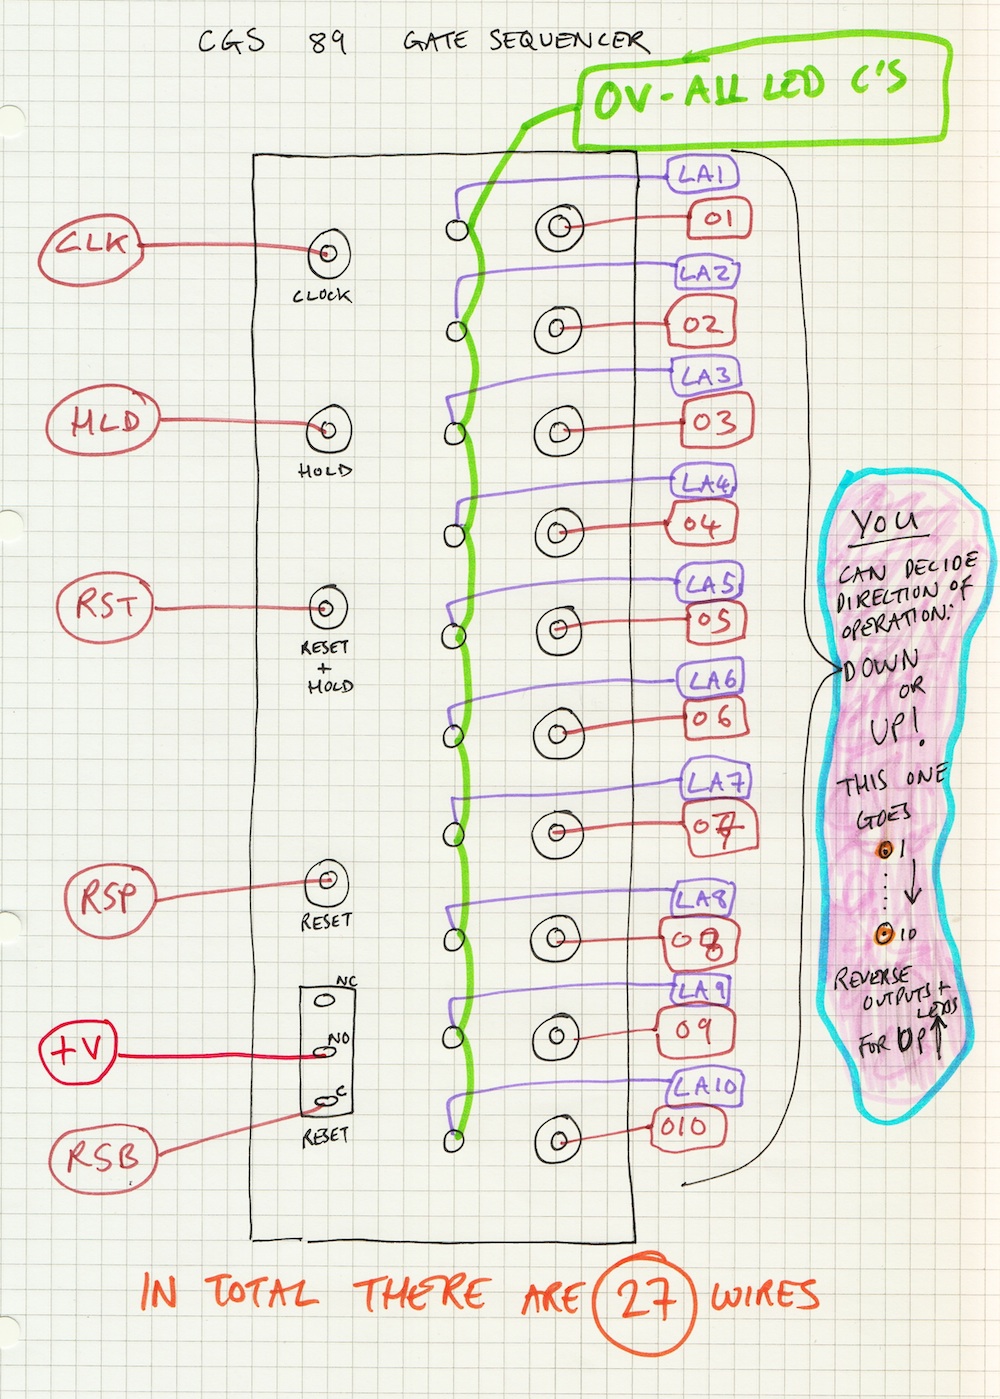 CGS 89 GATE SEQUENCER
0V - ALL LED C'S
LA1
01
CLK
CLOCK
LA2
02
LA3
03
HLD
HOLD
LA4
04
LA5
05
RST
RESET
+
HOLD
LA6
06
LA7
07
LA8
08
RSP
RESET
LA9
09
NC
NO
C
+V
RESET
RSB
LA10
010
YOU
CAN DECIDE
DIRECTION OF
OPERATION:
DOWN
OR
UP!
THIS ONE
GOES
1
10
REVERSE
OUTPUTS +
LEDS
FOR UP
IN TOTAL THERE ARE 27 WIRES